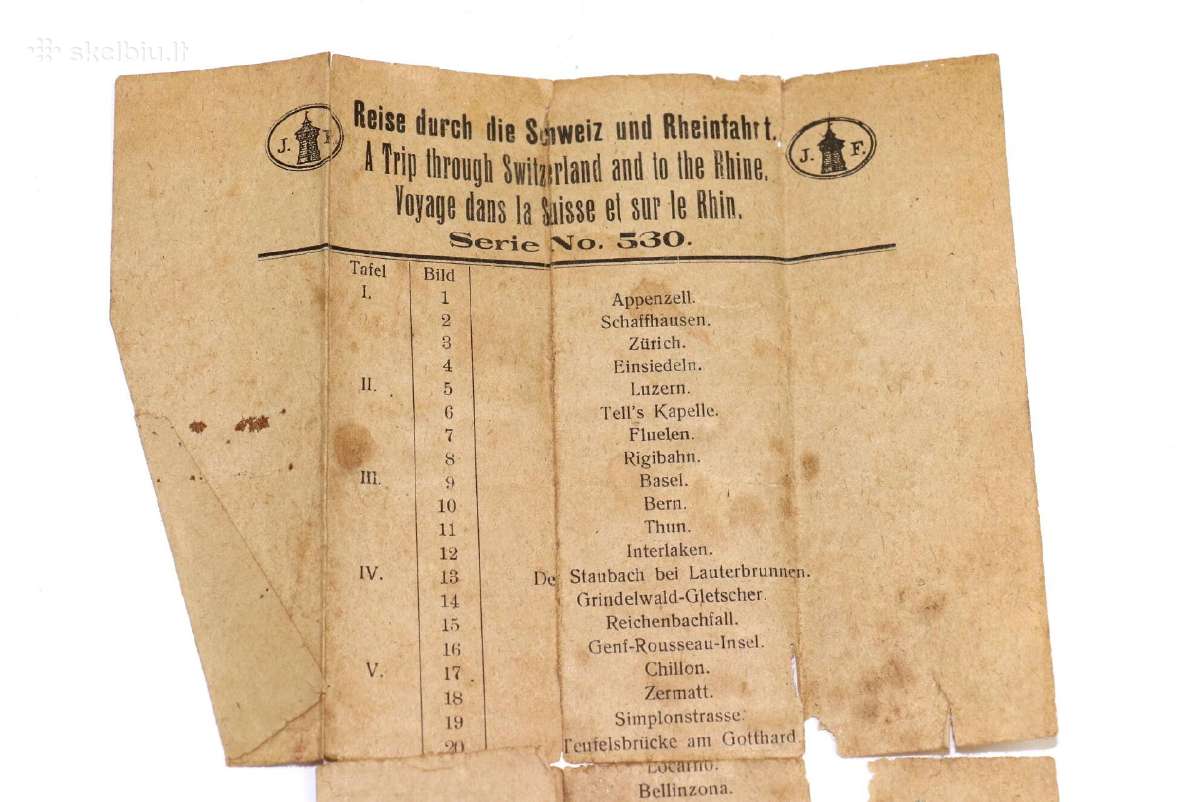 skelbiu.lt
J. F.
Reise durch die Schweiz und Rheinfahrt.
J. F.
A Trip through Switzerland and to the Rhine.
Voyage dans la Suisse et sur le Rhin.
Serie No. 530.
Tafel Bild
I. 1 Appenzell.
2 Schaffhausen.
3 Zürich.
4 Einsiedeln.
II. 5 Luzern.
6 Tell's Kapelle.
7 Fluelen.
8 Rigibahn.
III. 9 Basel.
10 Bern.
11 Thun.
12 Interlaken.
IV. 13 De Staubach bei Lauterbrunnen.
14 Grindelwald-Gletscher.
15 Reichenbachfall.
16 Genf-Rousseau-Insel.
V. 17 Chillon.
18 Zermatt.
19 Simplonstrasse.
20 Teufelsbrücke am Gotthard.
Locarno.
Bellinzona.